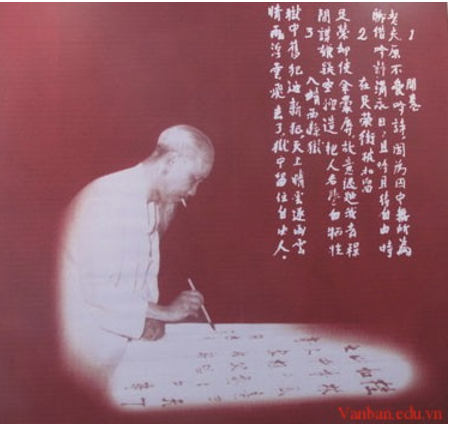 1 開卷
老夫原不愛吟詩，因為囚中無所為
聊借吟詩消永日，且吟且待自由時
2 在足榮街被扣留
足榮却使余蒙辱，故意遲延我去程
間諜嫌疑空捏造，把人名譽白犧牲
3 入靖西縣獄
獄中舊犯迎新犯，天上晴雲逐雨雲
晴雨浮雲飛去了，獄中留住自由人。
Vanban.edu.vn